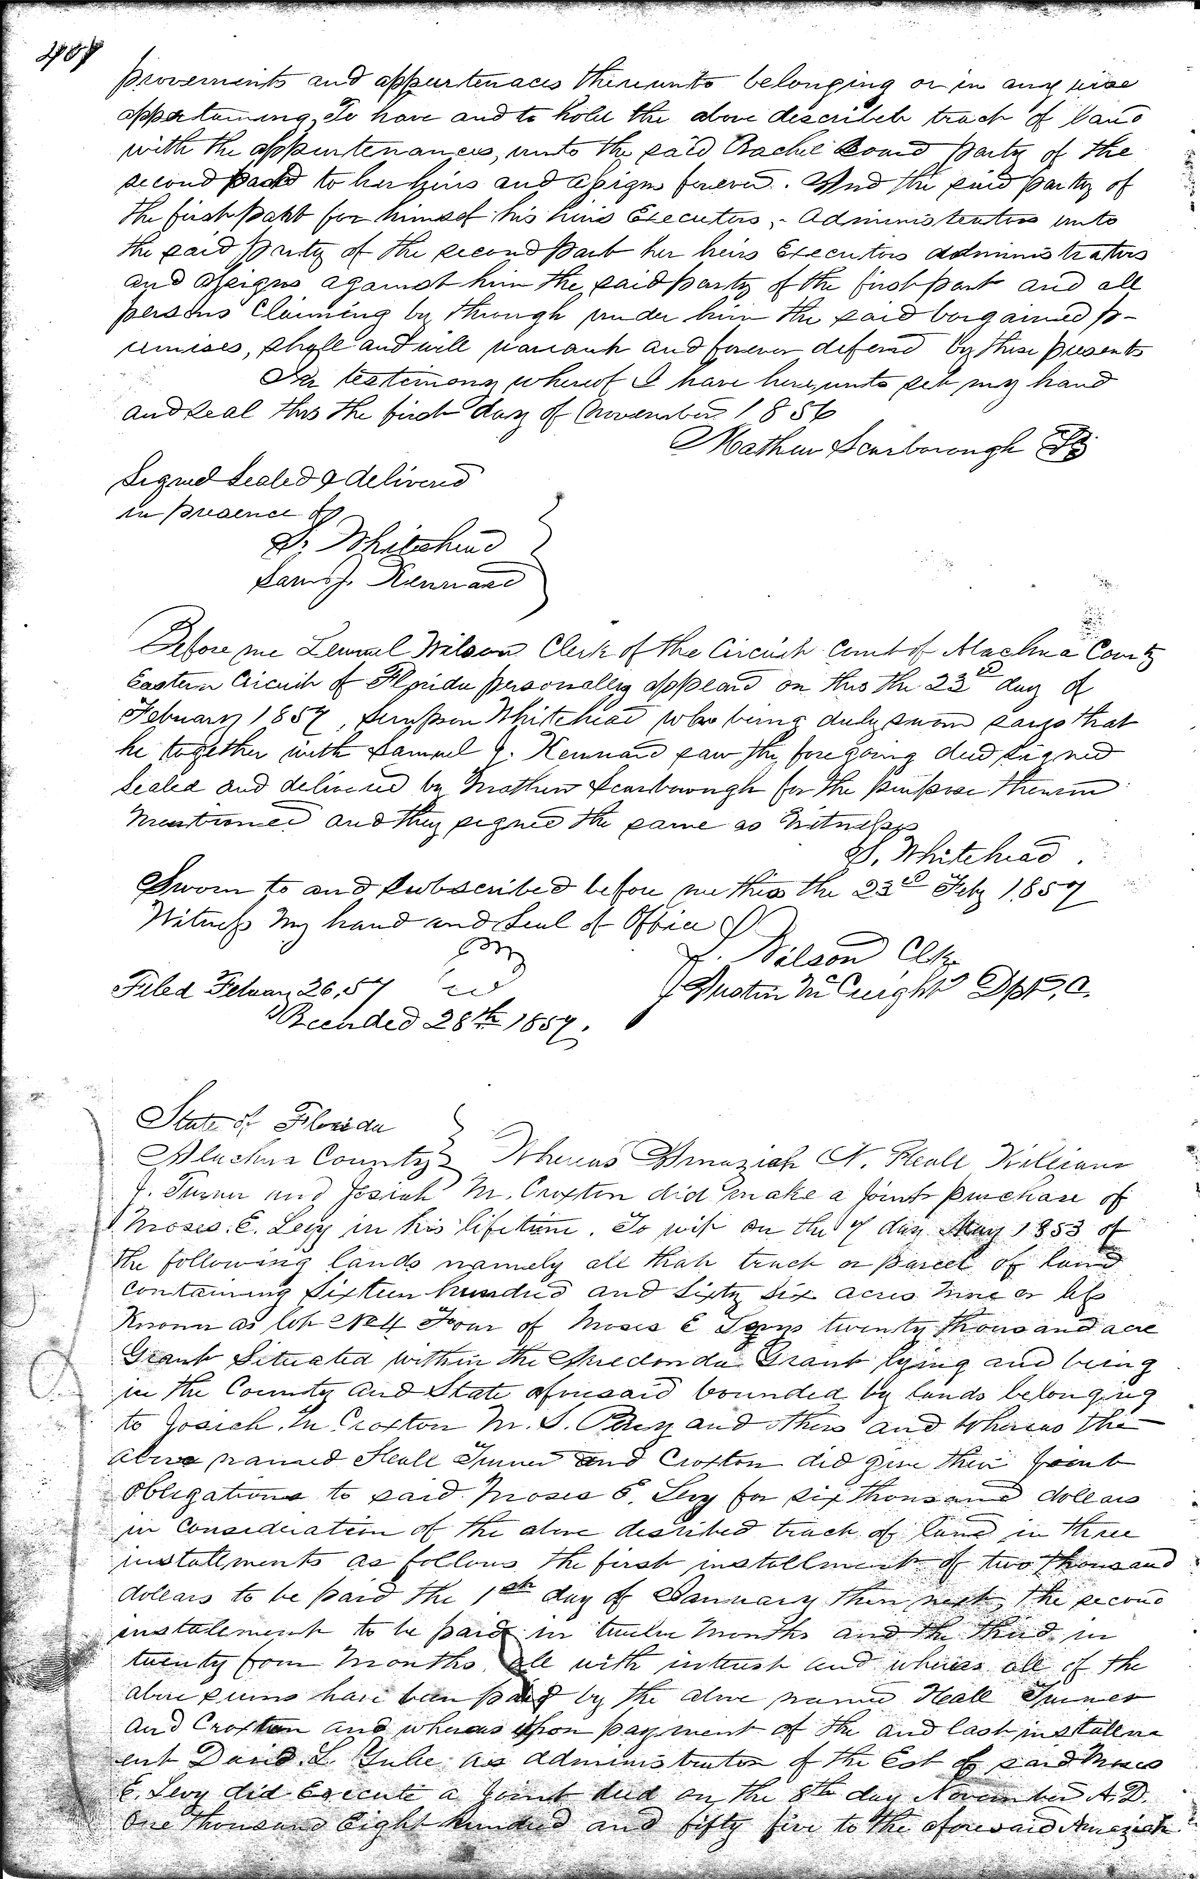 provements and appurtenaces thereunto belonging or in any wise
appertaining, To have and to hold the above describeb tract of land
with the appurtenances, unto the said Rachel party of the
second to her heirs and assigns forever. And the said party of
the first part for himself his heirs Executors, Administrators unto
the said party of the second part her heirs Executors administrators
and assigns against him the said party of the first part and all
persons Claiming by through under him the said bargained p-
remises, shall and will warrant and forever defend by these presents
In testimony whereof I have hereunto set my hand
and seal this the first day of November 1856
Mathew Scarborough
Signed Sealed & delivered
in presence of
S. Whitehead
Sam J. Kennard
Before me Lemuel Wilson Clerk of the Circuit Court of Alachua County
Eastern Circuit of Florida personally appeard on this the 23d day of
February 1857, Simpson Whitehead who being duly sworn says that
he together with Samuel J. Kennard saw the foregoing deed signed
Sealed and delivered by Mathew Scarborough for the purpose therein
mentioned and they signed the same as Witness
S. Whitehead
Sworn to and subscribed before me this the 23d Feby 1857
Witness My hand and Seal of Office
L. Wilson Clk
Filed 26, 57 Austin McCreight Dpt. C.
Recorded 28th 1857.
State of Florida
Alachua County Whereas Amaziah N. Heall William
J. Turner and Josiah M. Croxton did make a Joint purchase of
Moses E. Levy in his lifetime. To wit on the 7 day May 1853 of
the following lands namely all that tract or parcel of land
containing Sixteen hundred and Sixty Six acres more or less
Known as lot No 4 Four of Moses E twenty thousand acre
Grant Situated within the Arredondo Grant lying and being
in the County and State aforesaid bounded by lands belonging
to Josiah M. Croxton M. S. Perry and others and Whereas the
above named Heall Turner and Croxton did give their Joint
obligations to said Moses E. Levy for six thousand dollars
in consideration of the above described tract of land in three
instalments as follows the first installment of two thousand
dollars to be paid the 1st day of January then next, the second
instalment to be paid in twelve months and the third in
twenty four months all with interest and whereas all of the
above sums have been paid by the above named Heall Turner
and Croxton and whereas upon payment of the and last installm
ent David L Yulee as administrator of the Est of said Moses
E. Levy did Execute a Joint deed on the 8th day November A.D.
One thousand Eight hundred and fifty five to the aforesaid Amaziah